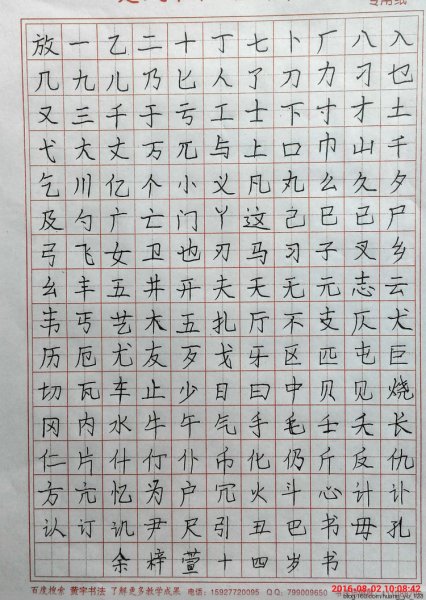 专用纸
放一乙二十丁七卜厂八入
几九儿乃匕人了刀力刁乜
又三千于亏工士下寸才土
弋大丈万兀与上口巾山千
乞川亿个小义凡丸么久夕
及勺广亡门丫这己巳已尸
弓飞女卫也刃马习子叉乡
幺丰五井开夫天无元志云
韦丐艺木五扎厅不支仄犬
历厄尤友歹戈牙区匹屯巨
切瓦车止少日曰中贝见烧
冈内水牛午气手毛壬夭长
仁片什仃仆币化仍斤反仇
方亢忆为户冗火斗心计讣
认订讥尹尺引丑巴书毋孔
余梓萱十四岁书
百度搜索 黄宇书法 了解更多教学成果 电话：15927720095 QQ：799009650
2016-08-02 10:08:42